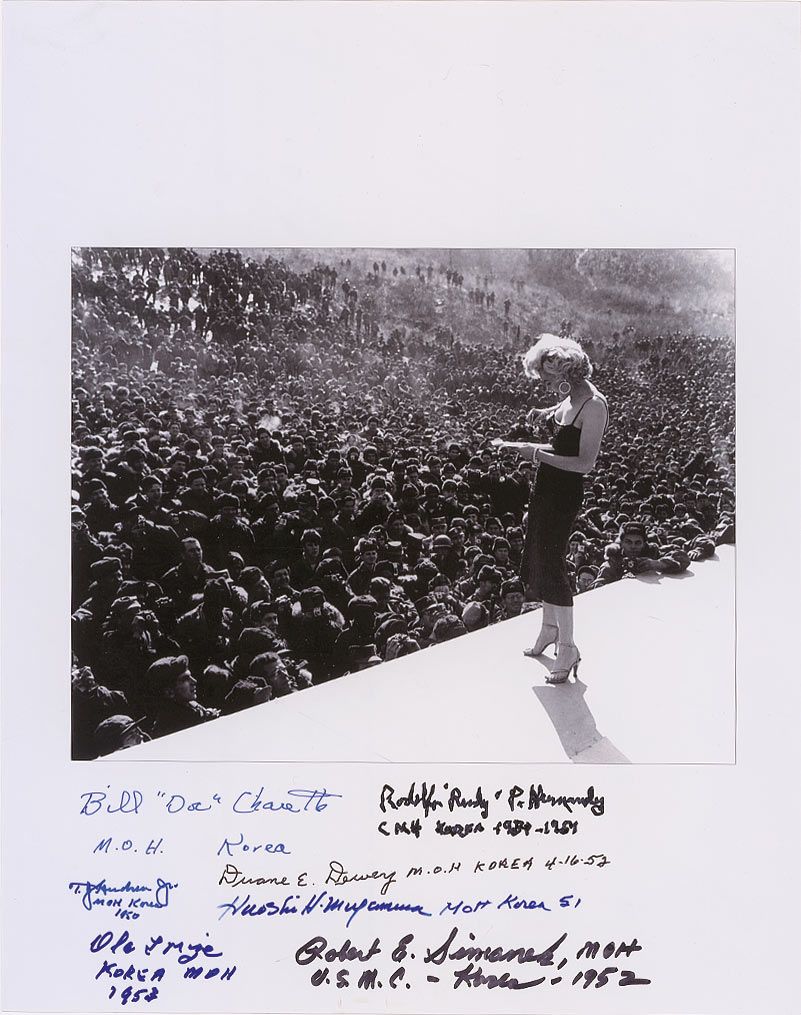 Bill "Doc" Charette
M.O.H. Korea
Rodolfo "Rudy" P. Hernandez
CMH KOREA 1951-1951
Duane E. Dewey M.O.H KOREA 4-16-52
Jr.
MOH Korea
1950
Hiroshi H. Miyamura MOH Korea 51
Ola Mize
KOREA MOH
1953
Robert E. Simanek, MOH
U.S.M.C. - Korea - 1952